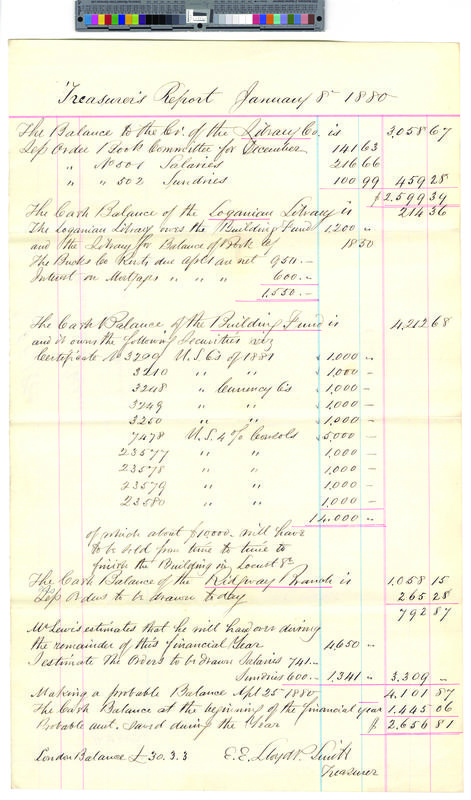 Treasurer's Report January 8th 1880
The Balance to the Cr. of the Library Co. is 3,058 67
Less Order Book Committee for December 141 63
" No 501 Salaries 216 66
" " 502 Sundries 100 99 459 28
$2,599 39
The Cash Balance of the Loganian Library is 214 36
The Loganian Library owes the Building Fund 1,200 "
and the Library for Balance of Book % 18 50
The Bucks Co Rents due Apl 1 are net 950.—
Interest on Mortgages " " " 600.—
1,550.—
The Cash Balance of the Building Fund is 4,212 68
and it owns the following Securities viz
Certificate No 3299 U.S. 6s of 1881 $1,000 "
3210 " " 1,000 —
3248 " Currency 6s 1,000 —
3249 " " 1,000 —
3250 " " 1,000 —
7478 U.S. 4 % Consols 5,000 —
23577 " " 1,000 —
23578 " " 1,000 —
23579 " " 1,000 —
23580 " " 1,000 —
14,000 "
of which about $10,000 will have
to be sold from time to time to
finish the Building on Locust St
The Cash Balance of the Ridgway Branch is 1,058 15
Less Orders to be drawn today 265 28
792 87
Mr Lewis estimates that he will hand over during
the remainder of this financial Year 4,650 "
I estimate the Orders to be drawn Salaries 741.—
Sundries 600.— 1,341 " 3,309 —
Making a probable Balance Apl 25 1880 4,101 87
The Cash Balance at the beginning of the financial year 1,445 06
Probable amt. saved during the Year $ 2,656 81
London Balance £30.3.3 Lloyd P. Smith
Treasurer